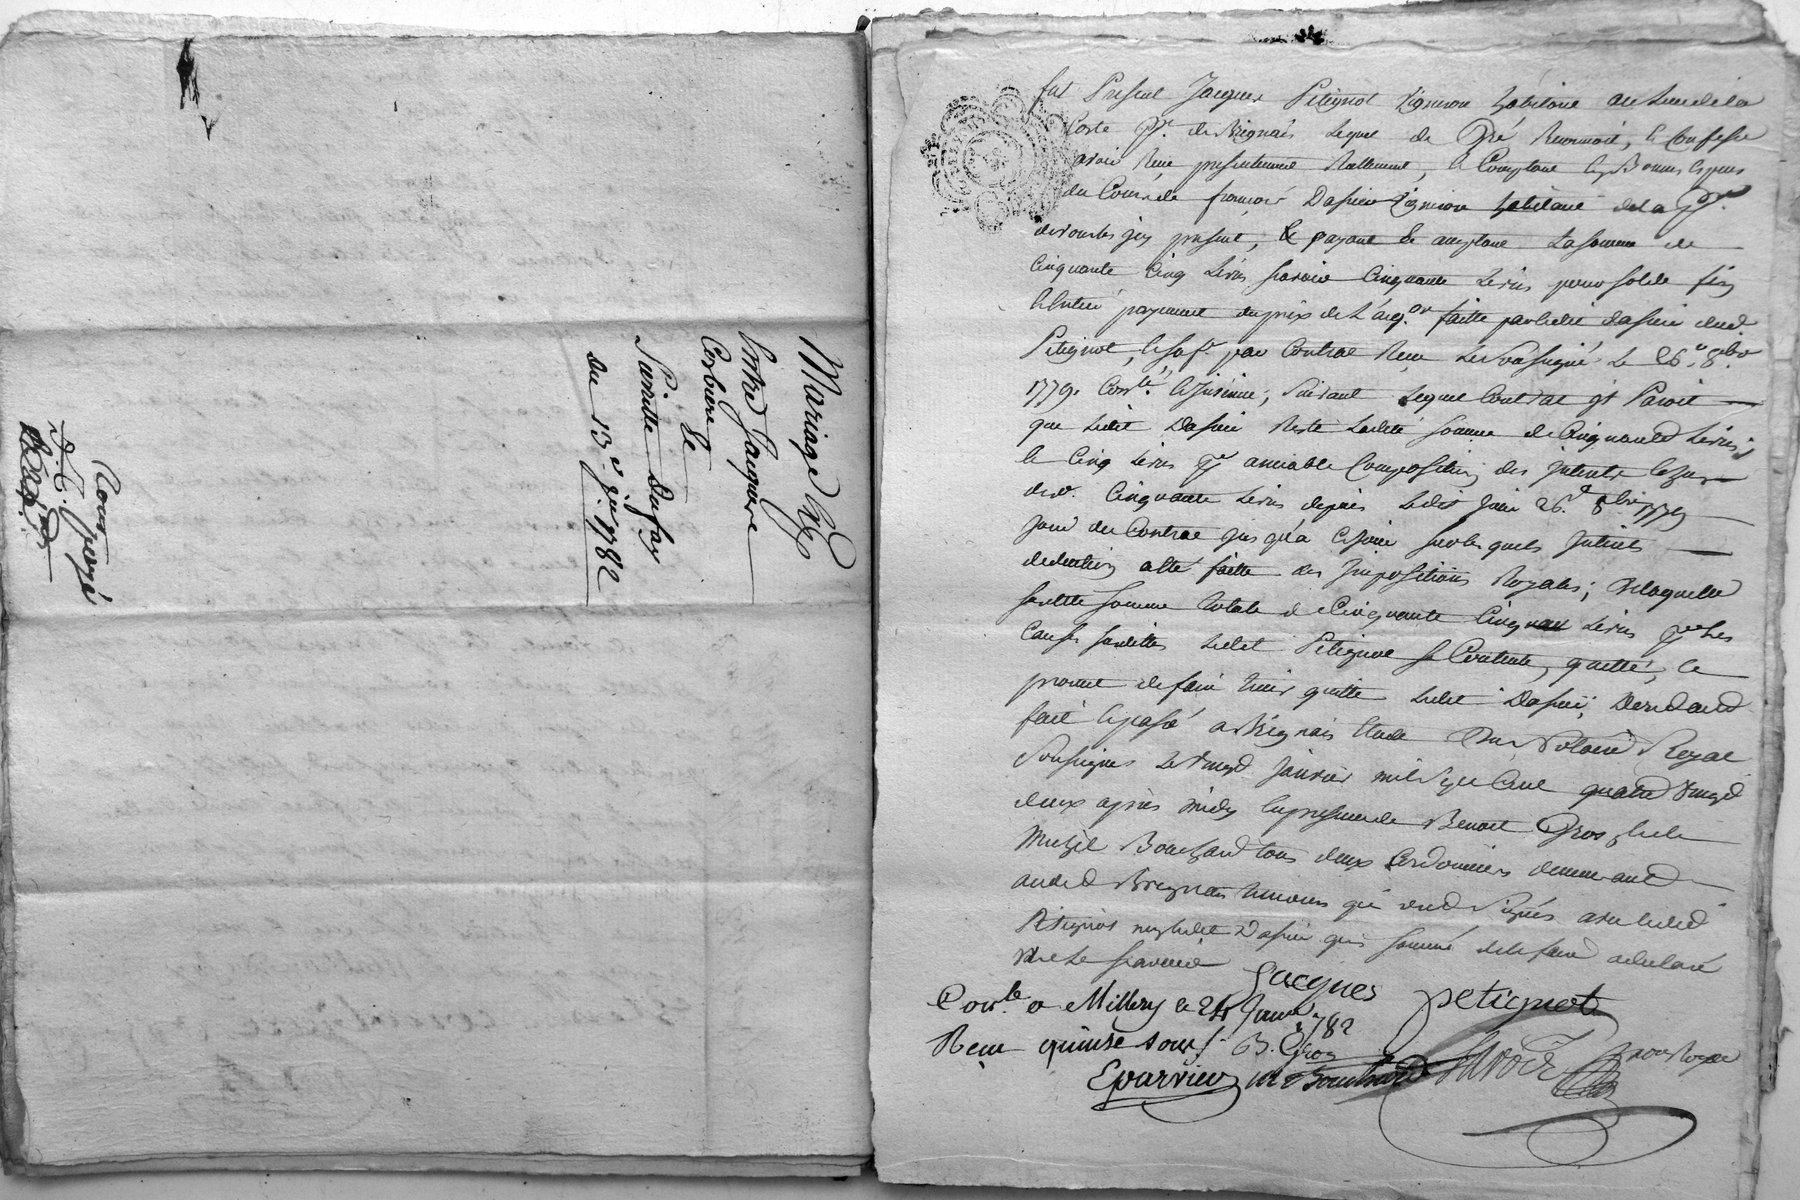 Mariage
Entre Jacques
Corbiere Et
Pierrette Dufay
du 13e 1782
fut Present Jacques Petignot Vigneron habitant au lieu de la
Coste psse de Brignais lequel de Gré Reconnoit, & Confesse
avoir Reçu presentement Reellement, & Comptant En Bonnes Especes
du Cours de françois Dasieu Vigneron habitant de la psse
de icy present, & payant & acceptant la somme de
Cinquante Cinq Livres savoir Cinquante Livres pour solde fin
& Entier payement du prix de L'acqon faitte par ledit Dasieu dud.
Petignot, & sa fe par Contrat Reçu Le Soussigné le 26e 8bre
1779 Conlé & Insinué; Suivant Lequel Contrat il Paroit
que Ledit Dasieu Reste Ladite somme de Cinquante Livres,
& Cinq Livres pr amiable Composition des Interets
de Cinquante Livres depuis Ledit Jour 26e 8bre 1779
Jour du Contrat jusqu'a Ce jour sur lesquels Interets
deduction a Eté faitte des Impositions Royales; De laquelle
susditte somme totale de Cinquante Cinq Livres pr Les
Causes susdittes Ledit Petignot se Contente, quitte, &
promet de faire tenir quitte Ledit Dasieu,
fait & passé a Brignais Etude Du Notaire Royal
Soussigné Le Vingt Janvier mil Sept Cent quatre Vingt
deux après midy En presence de Benoit Gros, & de
Michel Bouchard tous deux Cordonniers demeurant
aud Brignais temoins qui ont Signés avec Ledit
Petignot non Ledit Dasieu qui sommé de le faire a declaré
ne Le Savoir
Jacques petignot
Conle a Millery le 24 Janv. 1782
Reçu quinse sous B. Gros
Eparvier M Bouchard